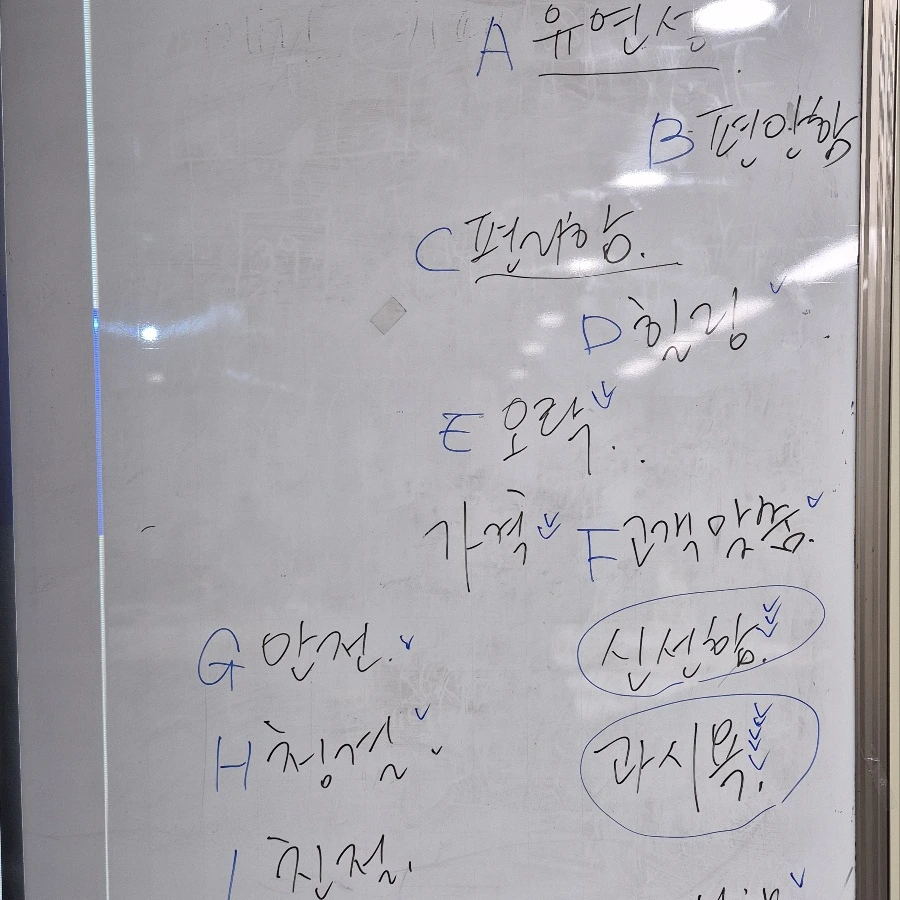 A 유연성
B 편안함
C 편리함.
D 힐링
E 오락.
가격 F 고객맞춤.
G 안전.
신선함.
H 청결
과시욕.
I 친절.